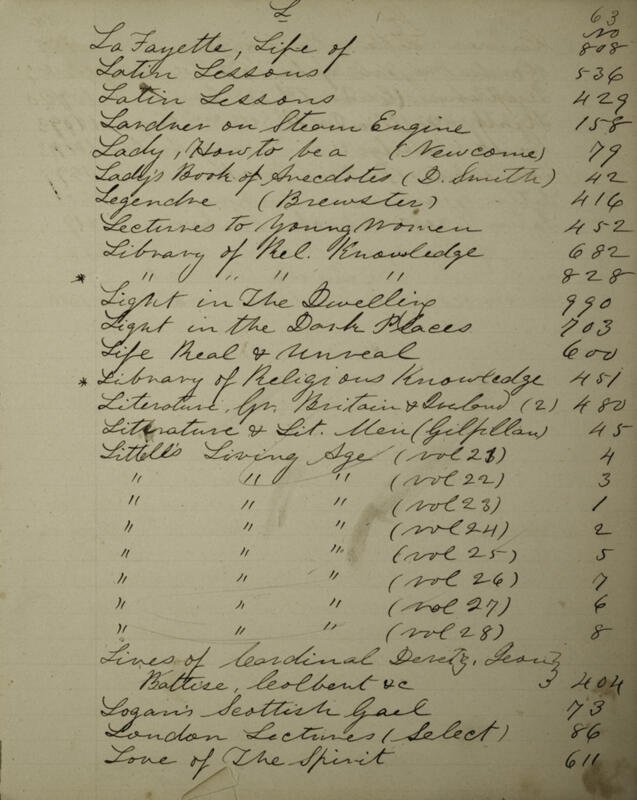 L 63
No
La Fayette, Life of 808
Latin Lessons 536
Latin Lessons 429
Lardner on Steam Engine 158
Lady, How to be a (Newcome) 79
Lady's Book of Anecdotes (D. Smith) 42
Legendre (Brewster) 416
Lectures to Young Women 452
Library of Rel. Knowledge 682
* " " " " 828
Light in The Dwelling 990
Light in the Dark Places 703
Life Real & Unreal 600
* Library of Religious Knowledge 451
Literature, Gr. Britain & Ireland (2) 480
Literature & Lit. Men (Gilfillan) 45
Littell's Living Age (vol 21) 4
" " " (vol 22) 3
" " " (vol 23) 1
" " " (vol 24) 2
" " " (vol 25) 5
" " " (vol 26) 7
" " " (vol 27) 6
" " " (vol 28) 8
Lives of Cardinal Deretz,
Battise, Colbert &c 3 404
Logan's Scottish Gael 73
London Lectures (Select) 86
Love of The Spirit 611